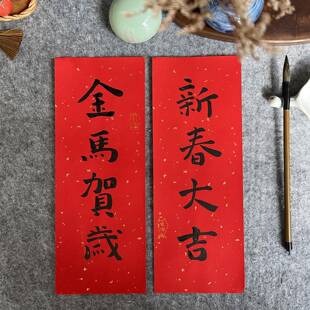 新春大吉
金馬賀歲